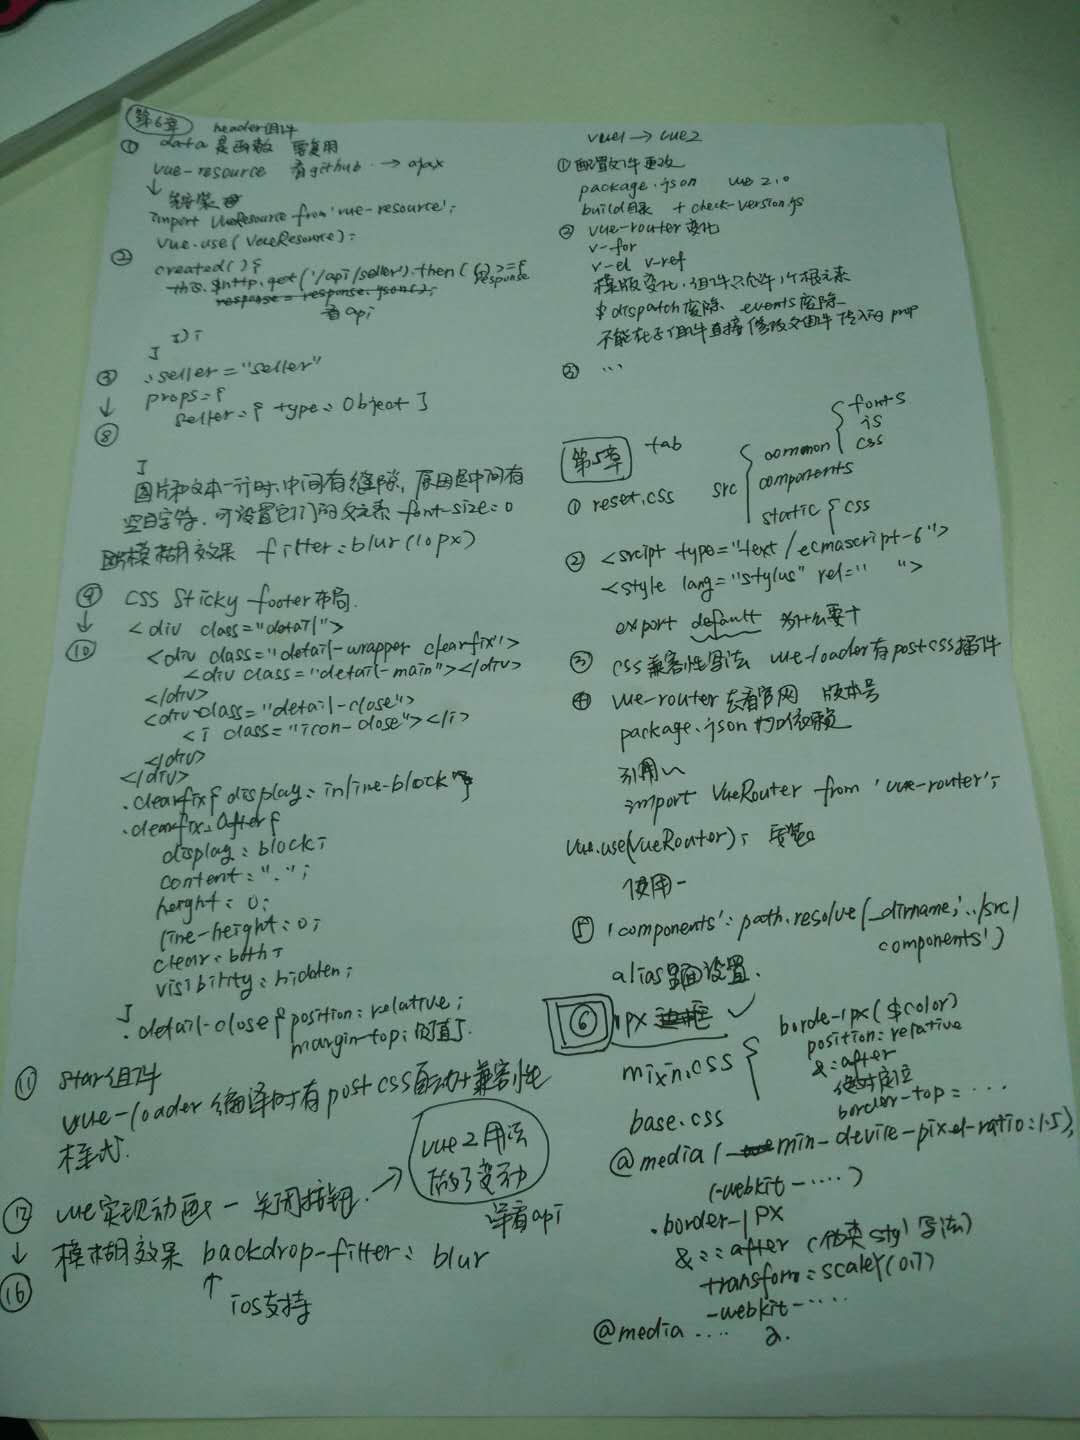 第6章 header组件
① data是函数 要复用
vue-resource 看github → ajax
↓ 安装
import VueResource from 'vue-resource';
Vue.use(VueResource);
② created(){
this.$http.get('/api/seller').then((response)=>{
response = response.json();
看api
});
}
③ :seller="seller"
↓ props:{
seller:{ type: Object }
⑧
}
图片和文本一行时,中间有缝隙,原因是中间有
空白字符.可设置它们的父元素 font-size:0
模糊效果 filter:blur(10px)
⑨ CSS Sticky footer布局.
↓ <div class="detail">
⑩ <div class="detail-wrapper clearfix">
<div class="detail-main"></div>
</div>
<div class="detail-close">
<i class="icon-close"></i>
</div>
</div>
.clearfix{ display: inline-block }
.clearfix:after{
display: block;
content: ".";
height: 0;
line-height: 0;
clear: both;
visibility: hidden;
}
.detail-close{ position: relative;
margin-top: 负值}.
⑪ star组件
vue-loader 编译时有postcss自动+兼容性
样式.
⑫ vue实现动画 - 关闭按钮. → vue2用法
做了变动
详看api
↓ 模糊效果 backdrop-filter: blur
⑯ ↑
ios支持
vue1 → vue2
① 配置文件更改
package.json vue 2.0
build目录 + check-version.js
② vue-router变化
v-for
v-el v-ref
模版变化.组件只允许1个根元素
$dispatch废除. events废除
不能在子组件直接修改父组件传入的prop
③ ...
第5章 tab
src { common { fonts
js
css
components
static { css
① reset.css
② <srcipt type="text/ecmascript-6">
<style lang="stylus" rel=" ">
export default 为什么要+
③ css兼容性写法 vue-loader有postcss插件
④ vue-router 去看官网 版本号
package.json 加依赖
引用~
import VueRouter from 'vue-router';
Vue.use(VueRouter); 安装。
使用-
⑤ 'components': path.resolve(_dirname,'../src/
components')
alias里面设置.
⑥ 1px 边框 ✓
mixin.css { borde-1px($color)
position: relative
&:after
绝对定位
border-top: ...
base.css
@media(-min-device-pixel-ratio:1.5),
(-webkit-....)
.border-1px
&::after (伪类 styl 写法)
transform: scaleY(0.7)
-webkit-....
@media .... 2.